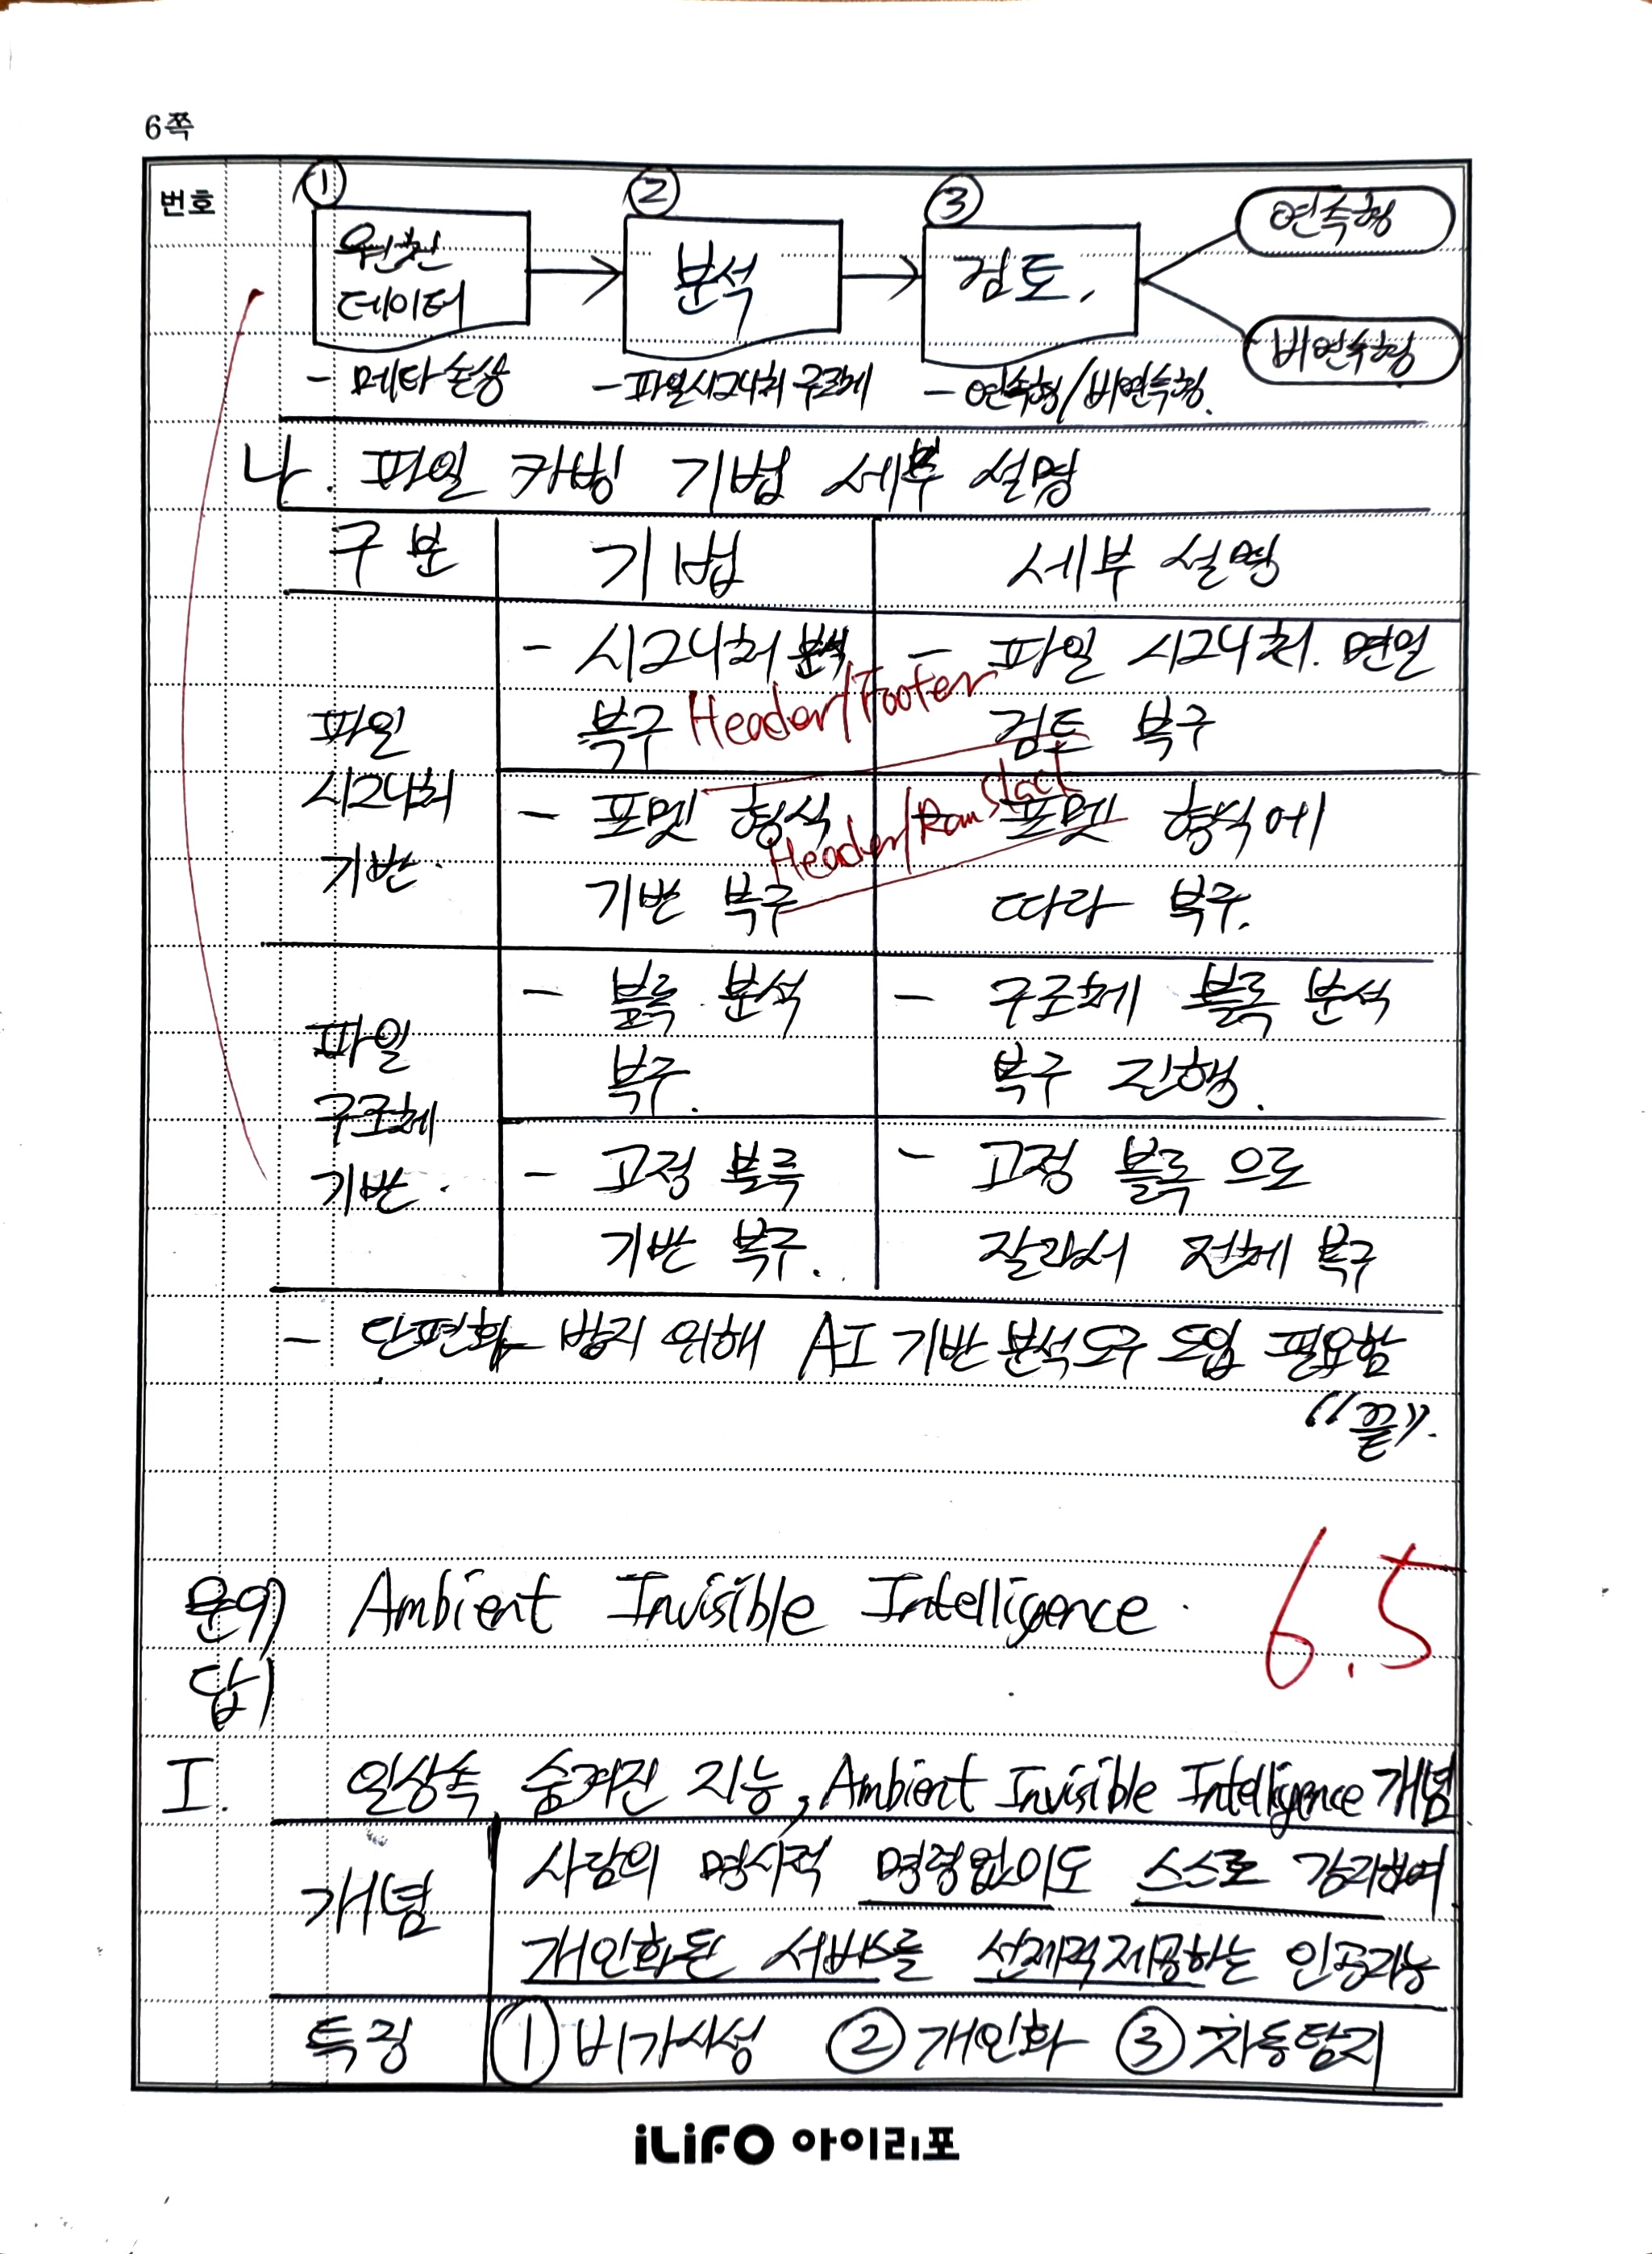 6쪽
번호
① ② ③
원천 데이터 분석 검토, 연속형
비연속형
- 메타 손상 - 파일시그니처 구조체 - 연속형/비연속형.
나. 파일 카빙 기법 세부 설명
구분 기법 세부 설명
파일 시그니처 기반.
- 시그니처 분석 - 파일 시그니처. 면일
복구 Header/Footer 검토 복구
- 포멧 형식 - 포멧 형식에
Header/Ram Slack
기반 복구 따라 복구.
파일 구조체 기반.
- 블록 분석 - 구조체 블록 분석
복구. 복구 진행.
- 고정 블록 - 고정 블록으로
기반 복구. 잘라서 전체 복구
- 단편화 방지 위해 AI 기반 분석도구 도입 필요함
"끝".
문9) Ambient Invisible Intelligence. 6.5
답)
I. 일상속 숨겨진 지능, Ambient Invisible Intelligence 개념
개념 사람의 명시적 명령없이도 스스로 감지하여
개인화된 서비스를 선제적 제공하는 인공지능
특징 ① 비가시성 ② 개인화 ③ 자동탐지
iLiFO 아이리포